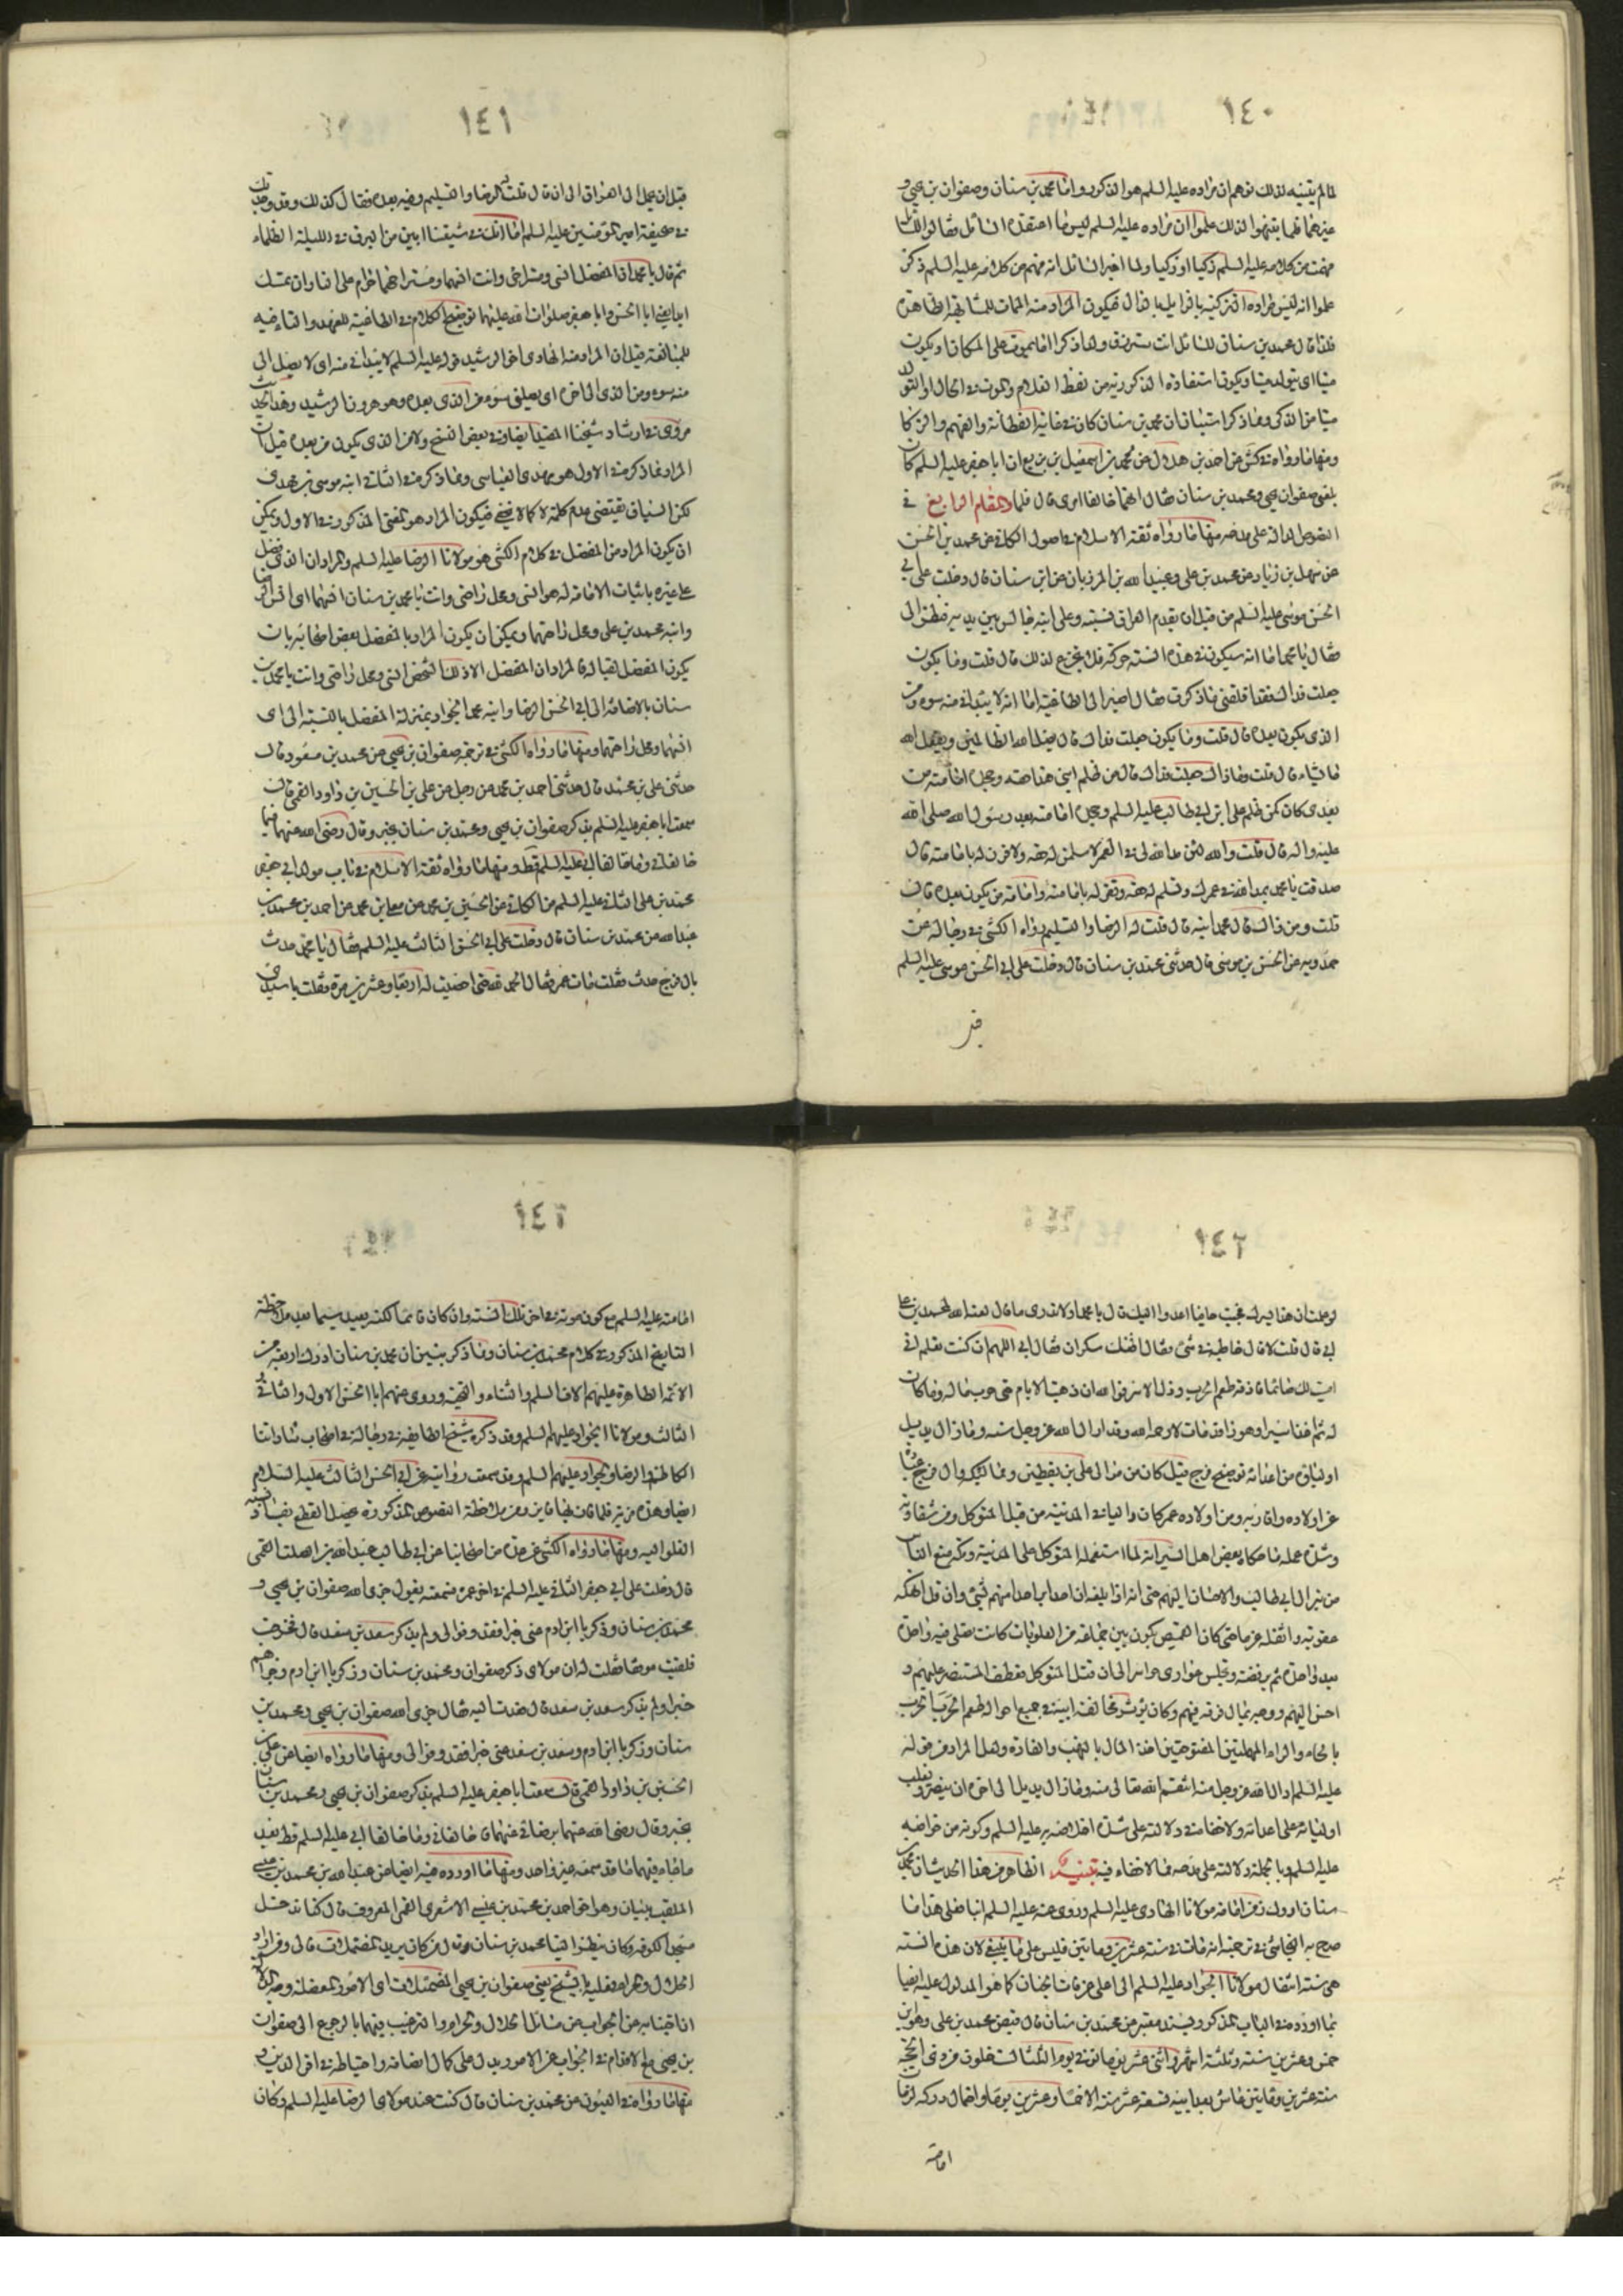 ١٤٠
لما لم يتبينه لذلك توهم ان مراده عليه السلم هو المذكور واما محمد بن سنان وصفوان بن يحيى و
غيرهما فلما تنبهوا لذلك علموا ان مراده عليه السلم ليس ما اعتقده القائل فقالوا
فهمت من كلامه عليه السلم ذكيا او زكيا ولما اخبر القائل انه فهم من كلامه عليه السلم ذكر
علموا انه ليس مراده فيكون المراد منه الممات
فلذا قال محمد بن سنان للقائل انت
ميتا اى يتولد ميتا ويكون استفادة المذكور من لفظ الغلام والموت في الحال او التولد
ميتا من الذكى ومما ذكر استبان ان محمد بن سنان كان في غاية الفطانة والفهم والزكا
ومنها ما رواه في كش عن احمد بن هلال عن محمد بن اسمعيل بن بزيع ان ابا جعفر عليه السلم كان
يلعن صفوان بن يحيى ومحمد بن سنان فقال انهما خالفا امرى قال فلما المقام الرابع في
النصوص الدالة على مدحه منها ما رواه ثقة الاسلام في اصول الكافي عن محمد بن الحسن
عن سهل بن زياد عن محمد بن على وعبيد الله بن المرزبان عن ابن سنان قال دخلت على ابي
الحسن موسى عليه السلم من قبل ان يقدم العراق بسنة وعلى ابنه جالس بين يديه فنظر الى
فقال يا محمد اما انه سيكون في هذه السنة حركة فلا تجزع لذلك قال قلت وما يكون
جعلت فداك فقد اقلقنى ما ذكرت فقال اصير الى الطاغية اما انه لا يبدانى منه سوء ومن
الذى يكون بعده قال قلت وما يكون جعلت فداك قال يضل الله الظالمين ويفعل الله
ما يشاء قال قلت وما ذاك جعلت فداك قال من ظلم ابنى هذا حقه وجحد امامته من
بعدى كان كمن ظلم على ابن ابي طالب عليه السلم وجحد امامته بعد رسول الله صلى الله
عليه واله قال قلت والله لئن مد الله لى في العمر لاسلمن له حقه ولاقرن له بامامته قال
صدقت يا محمد يمد الله في عمرك وتسلم له حقه وتقر له بامامته وامامة من يكون بعده قال
قلت ومن ذاك قال محمد ابنه قال قلت له الرضا والتسليم رواه الكشي في رجاله عن
حمدويه عن الحسن بن موسى قال حدثنى محمد بن سنان قال دخلت على ابي الحسن موسى عليه السلم
١٤١
قبل ان يحمل الى العراق الى ان قال قلت الرضا والتسليم وفيه بعده فقال كذلك وقد وجدتك
في صحيفة امير المؤمنين عليه السلم اما انك في شيعتنا ابين من البرق في الليلة الظلماء
ثم قال يا محمد ان المفضل انسى ومستراحى وانت انسهما ومستراحهما حرام على النار ان تمسك
ابدا يعنى ابا الحسن وابا جعفر صلوات الله عليهما توضيح الكلام في الطاغية للعهد والتاء فيه
للمبالغة قيل ان المراد منه الهادى اخو الرشيد قوله عليه السلم لا يبدانى منه اى لا يصل الى
منه سوء ومن الذى الى اخره اى يصلنى سوء من الذى بعده وهو هرون الرشيد وهذا الحديث
مروى في ارشاد شيخنا المفيد ايضا وفي بعض النسخ ولا من الذى يكون من بعده قيل ان
المراد مما ذكر في الاول هو مهدى العباسى ومما ذكر في الثاني ابنه موسى بن مهدى
لكن السياق يقتضى عدم كلمة لا كما لا يخفى فيكون المراد هو المعنى المذكور في الاول ويمكن
ان يكون المراد من المفضل في كلام الكشي هو مولانا الرضا عليه السلم والمراد ان الذى فضل
على غيره باثبات الامامة له هو انسى ومحل راحتى وانت يا محمد بن سنان انسهما اى انس الرضا
وابنه محمد بن على ومحل راحتهما ويمكن ان يكون المراد بالمفضل بعض اصحابه بان
يكون المفضل لقبا له فالمراد ان المفضل الا ذلك الشخص انسى ومحل راحتى وانت يا محمد بن
سنان بالاضافة الى ابي الحسن الرضا وابنه محمد الجواد بمنزلة المفضل بالنسبة الى اى
انسهما ومحل راحتهما ومنها ما رواه الكشي في ترجمة صفوان بن يحيى عن محمد بن مسعود قال
حدثنى على بن محمد قال حدثنى احمد بن محمد عن رجل عن على بن الحسين بن داود القمى قال
سمعت ابا جعفر عليه السلم يذكر صفوان بن يحيى ومحمد بن سنان بخير وقال رضى الله عنهما فما
خالفانى وما خالفا ابي عليه السلم قط ومنها ما رواه ثقة الاسلام في باب مولد ابي جعفر
محمد بن على الثاني عليه السلم من الكافي عن الحسين بن محمد عن معلى بن محمد عن احمد بن محمد بن
عبد الله عن محمد بن سنان قال دخلت على ابي الحسن الثالث عليه السلم فقال يا محمد حدث
بال فرج حدث فقلت مات عمر فقال الحمد لله حتى احصيت له اربعا وعشرين مرة فقلت يا سيدى
١٤٢
لو علمت ان هذا يسرك لجئت حافيا اعدو اليك قال يا محمد اولا تدرى ما قال لعنه الله لمحمد بن على
ابي قال قلت لا قال خاطبه في شئ فقال اظنك سكران فقال ابي اللهم ان كنت تعلم انى
امسيت لك صائما فاذقه طعم الحرب وذل الاسر فوالله ان ذهبت الايام حتى حرب ماله وما كان
له ثم اخذ اسيرا وهو ذا قد مات لا رحمه الله وقد ادال الله عز وجل منه وما زال يديل
اولياؤه من اعدائه توضيح فرج قيل كان من موالى على بن يقطين وال فرج
عن اولاده واقاربه ومن اولاده عمر كان واليا في المدينة من قبل المتوكل ومن شقاوته
وشدة عمله ما حكاه بعض اهل السير انه لما استعمله المتوكل على المدينة ومكة منع الناس
من بر ال ابي طالب والاحسان اليهم حتى انه اذا بلغه ان احدا بر احدا منهم بشئ وان قل انهكه
عقوبة واثقله غرما حتى كان القميص يكون بين جماعة من العلويات كانت تصلى فيه واحدة
بعد واحدة ثم يرفعنه ويجلس عوارى حواسر الى ان قتل المتوكل فعطف المستنصر عليهم و
احسن اليهم ووجه بمال فرقه فيهم وكان يؤثر مخالفة ابيه في جميع احواله طعم الحرب الحرب
بالحاء والراء المهملتين المفتوحتين اخذ المال بالنهب والغارة ولعل المراد من قوله
عليه السلم ادال الله عز وجل منه انتقم الله تعالى منه وما زال يديل الى اخره ان ينصر ويغلب
اوليائه على اعدائه ولا خفاء في دلالته على شدة اختصاصه به عليه السلم وكونه من خواصه
عليه السلم وبالجملة دلالته على مدحه مما لا خفاء فيه تنبيه الظاهر من هذا الحديث ان محمد بن
سنان ادرك زمن امامة مولانا الهادى عليه السلم وروى عنه عليه السلم ايضا فعلى هذا ما
صرح به النجاشي في ترجمته انه مات في سنة عشرين ومأتين فليس على ما ينبغى لان هذه السنة
هى سنة انتقال مولانا الجواد عليه السلم الى اعلى غرفات الجنان كما هو المدلول عليه ايضا
بما اورده في الباب المذكور بسند معتبر عن محمد بن سنان قال قبض محمد بن على وهو ابن
خمس وعشرين سنة وثلثة اشهر واثنى عشر يوما توفى يوم الثلثا لست خلون من ذى الحجة
سنة عشرين ومأتين عاش بعد ابيه تسعة عشر سنة الا خمسا وعشرين يوما واحتمال دركه لزمان
امامته
١٤٣
امامته عليه السلم مع كون موته في اخر تلك السنة وان كان قائما لكنه بعيد سيما بعد ملاحظة
التاريخ المذكور في كلام محمد بن سنان ومما ذكر يتبين ان محمد بن سنان ادرك اربعة من
الائمة الطاهرة عليهم الاف السلم والثناء والتحية وروى عنهم ابا الحسن الاول والثاني و
الثالث ومولانا الجواد عليهم السلم وقد ذكره شيخ الطايفة في رجاله في اصحاب ساداتنا
الكاظم والرضا والجواد عليهم السلم وقد سمعت روايته عن ابي الحسن الثالث عليه السلام
ايضا وهذه مزية قلما فاز بها فايز ومن ملاحظة النصوص المذكورة يحصل القطع بفساد نسبة
الغلو اليه ومنها ما رواه الكشي عن عدة من اصحابنا عن ابي طالب عبد الله بن الصلت القمى
قال دخلت على ابي جعفر الثاني عليه السلم في اخر عمره فسمعته يقول جزى الله صفوان بن يحيى و
محمد بن سنان وزكريا ابن ادم عنى خيرا فقد وفوا لى ولم يذكر سعد بن سعد قال فخرجت
فلقيت موفقا فقلت له ان مولاى ذكر صفوان ومحمد بن سنان وزكريا ابن ادم وجزاهم
خيرا ولم يذكر سعد بن سعد قال فعدت اليه فقال جزى الله صفوان بن يحيى ومحمد بن
سنان وزكريا ابن ادم وسعد بن سعد عنى خيرا فقد وفوا لى ومنها ما رواه ايضا عن على بن
الحسين بن داود القمى قال سمعت ابا جعفر عليه السلم يذكر صفوان بن يحيى ومحمد بن سنان
بخير وقال رضى الله عنهما برضائى عنهما فما خالفانى وما خالفا ابي عليه السلم قط بعد
ما جاء فيهما ما قد سمعه غير واحد ومنها ما اورده فيه ايضا عن عبد الله بن محمد بن عيسى
الملقب ببنان وهو اخو احمد بن محمد بن عيسى الاشعرى القمى المعروف قال كنا ندخل
مسجد الكوفة وكان ينظر الينا محمد بن سنان وقال من كان يريد المعضلات فالى ومن اراد
الحلال والحرام فعليه بالشيخ يعنى صفوان بن يحيى المعضلات اى الامور المعضلة
من الجواب عن مسائل الحلال والحرام والترغيب فيهما بالرجوع الى صفوان
بن يحيى مع الاقدام في الجواب عن الامور يدل على كمال انصافه واحتياطه في امر الدين و
منها ما رواه في العيون عن محمد بن سنان قال كنت عند مولاى الرضا عليه السلم وكان